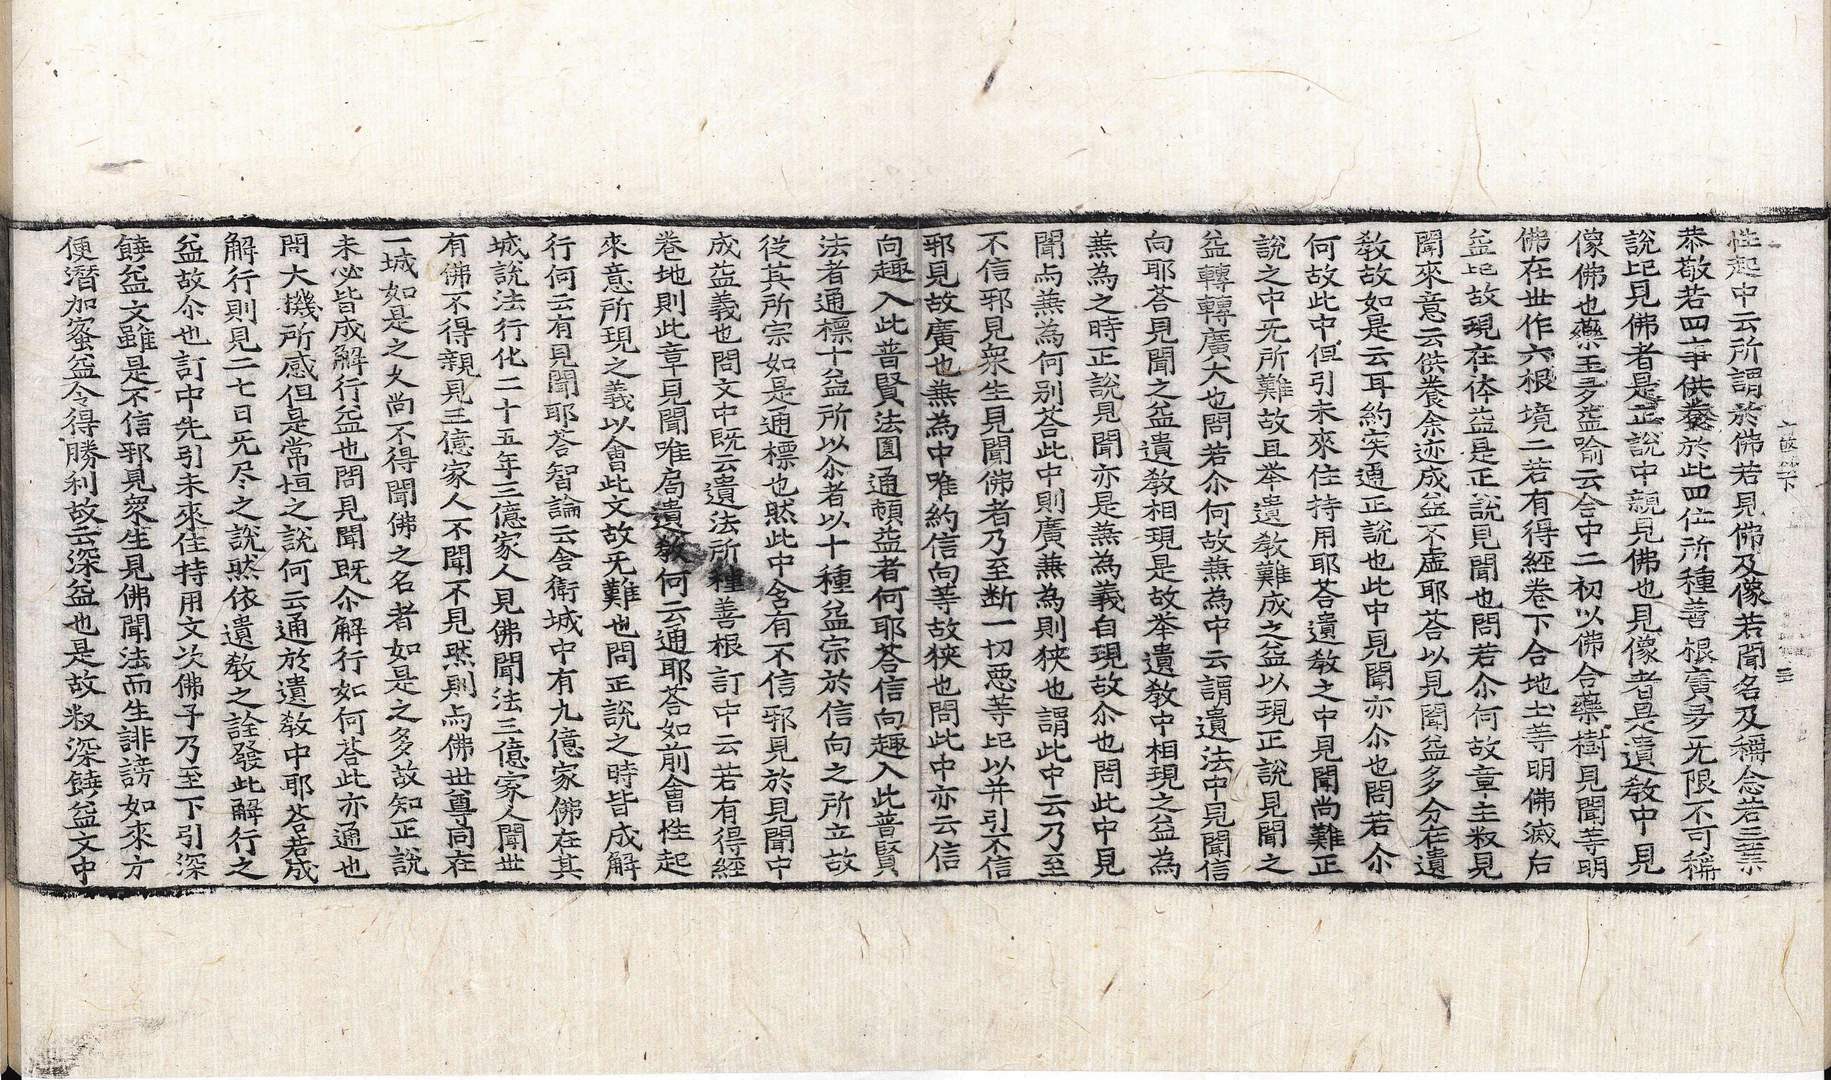 性起中云所謂於佛若見佛及像若聞名及稱念若三業
恭敬若四事供養於此四位所種善根實多无限不可稱
說記見佛者是正說中親見佛也見像者是遺教中見
像佛也藥王多益喻云合中二初以佛合藥樹見聞等明
佛在世作六根境二若有得經卷下合地土等明佛滅后
益記故現在体益是正說見聞也問若尒何故章主叙見
聞來意云供養余迹成益不虛耶荅以見聞益多分在遺
教故如是云耳約实通正說也此中見聞亦尒也問若尒
何故此中但引未來住持用耶荅遺教之中見聞尚難正
說之中无所難故且举遺教難成之益以現正說見聞之
益轉轉廣大也問若尒何故兼為中云謂遺法中見聞信
向耶荅見聞之益遺教相現是故举遺教中相現之益為
兼為之時正說見聞亦是兼為義自現故尒也問此中見
聞与兼為何别荅此中則廣兼為則狭也謂此中云乃至
不信邪見衆生見聞佛者乃至断一切惡等記以并引不信
邪見故廣也兼為中唯約信向等故狭也問此中亦云信
向趣入此普賢法圎通頓益者何耶荅信向趣入此普賢
法者通標十益所以尒者以十種益宗於信向之所立故
從其所宗如是通標也然此中含有不信邪見於見聞中
成益義也問文中既云遺法所種善根訂中云若有得經
卷地則此章見聞唯局遺教何云通耶荅如前會性起
來意所現之義以會此文故无難也問正說之時皆成解
行何云有見聞耶荅智論云舍衛城中有九億家佛在其
城說法行化二十五年三億家人見佛聞法三億家人聞世
有佛不得親見三億家人不聞不見然則与佛世尊同在
一城如是之久尚不得聞佛之名者如是之多故知正說
未必皆成解行益也問見聞既尒解行如何荅此亦通也
問大機所感但是常恒之說何云通於遺教中耶荅若成
解行則見二七日无尽之說然依遺教之詮發此解行之
益故尒也訂中先引未來住持用文次佛子乃至下引深
饒益文雖是不信邪見衆生見佛聞法而生誹謗如來方
便潛加蜜益令得勝利故云深益也是故叙深饒益文中